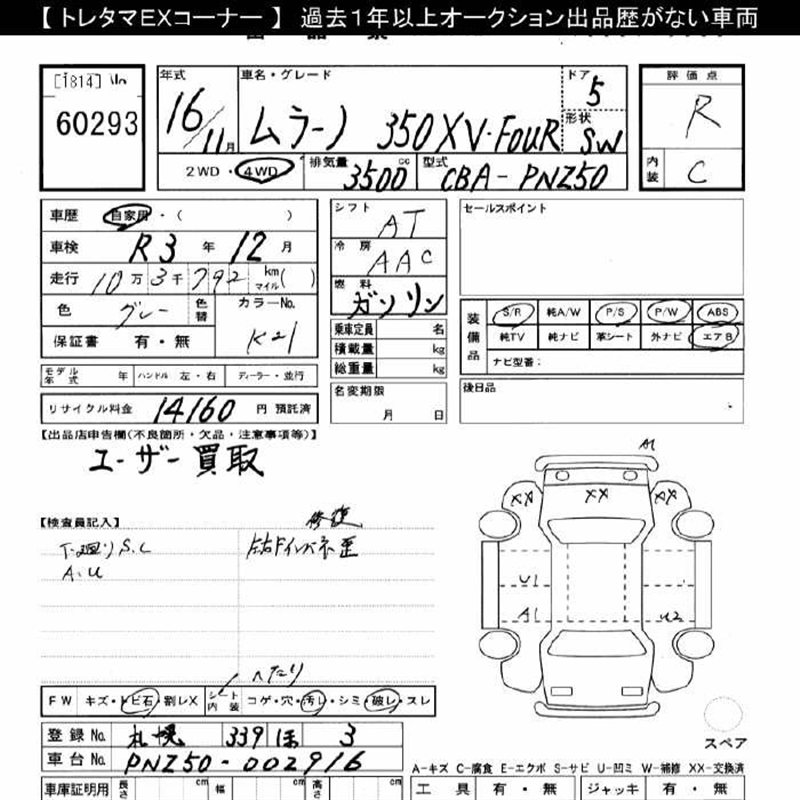 【 トレタマEXコーナー 】 過去1年以上オークション出品歴がない車両
60293
年式 16/11月
車名・グレード ムラーノ 350XV・FOUR
ドア 5
形状 SW
評価点 R
2WD・4WD
排気量 3500 cc
型式 CBA-PNZ50
内装 C
車歴 自家用・( )
シフト AT
セールスポイント
車検 R3年 12月
冷房 AAC
走行 10万3千792 km マイル( )
燃料 ガソリン
色 グレー 色替
カラーNo. K21
装備品 S/R 純A/W P/S P/W ABS
純TV 純ナビ 革シート 外ナビ エアB
ナビ型番:
保証書 有・無
乗車定員 名
積載量 kg
総重量 kg
モデル年式 年 ハンドル 左・右 ディーラー・並行
名変期限 月 日
後日品
リサイクル料金 14160 円 預託済
【出品店申告欄(不良箇所・欠品・注意事項等)】
ユーザー買取
A1
XX XX XX
【検査員記入】
修復
下廻りS.C
左右Fインパネ歪
A.U
U1
A1 U2
へたり
FW キズ・トビ石・割レX
シート内装 コゲ・穴・汚レ・シミ・破レ・スレ
登録No. 札幌 339 ほ 3
スペア
車台No. PNZ50-002916
A-キズ C-腐食 E-エクボ S-サビ U-凹ミ W-補修 XX-交換済
車庫証明用 長さ cm 幅 cm 高さ cm
工具 有・無 ジャッキ 有・無